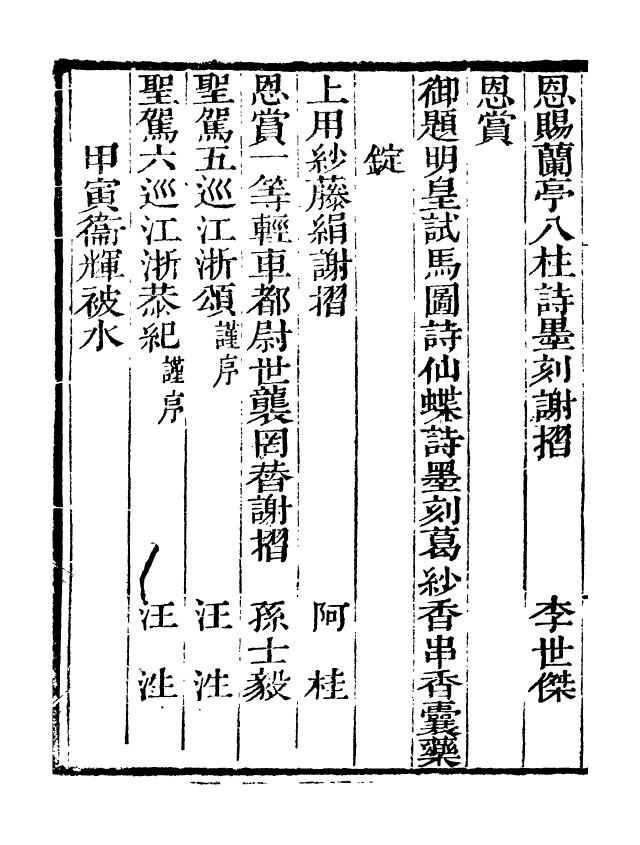 恩賜蘭亭八柱詩墨刻謝摺 李世傑
恩賞
御題明皇試馬圖詩仙蝶詩墨刻葛紗香串香囊藥
錠
上用紗藤絹謝摺 阿桂
恩賞一等輕車都尉世襲罔替謝摺 孫士毅
聖駕五巡江浙頌 謹序 汪
聖駕六巡江浙恭紀 謹序 汪
甲寅衞輝被水